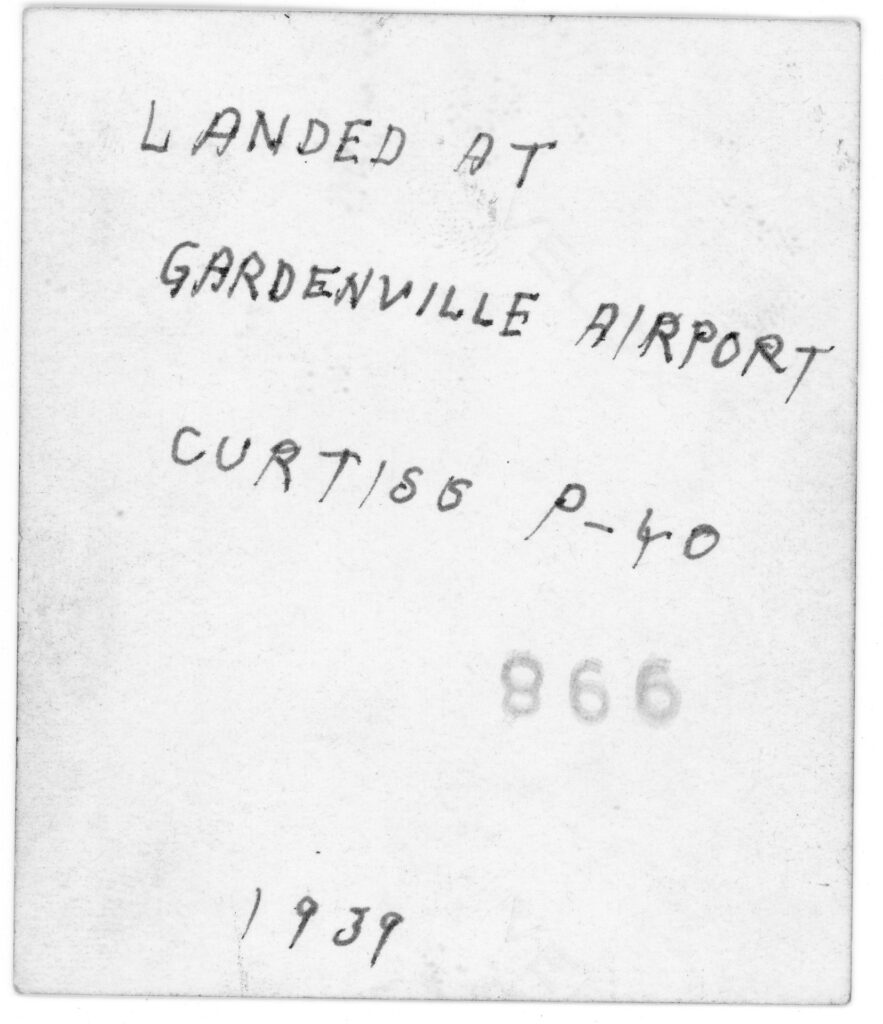 LANDED AT
GARDENVILLE AIRPORT
CURTISS P-40
866
1939